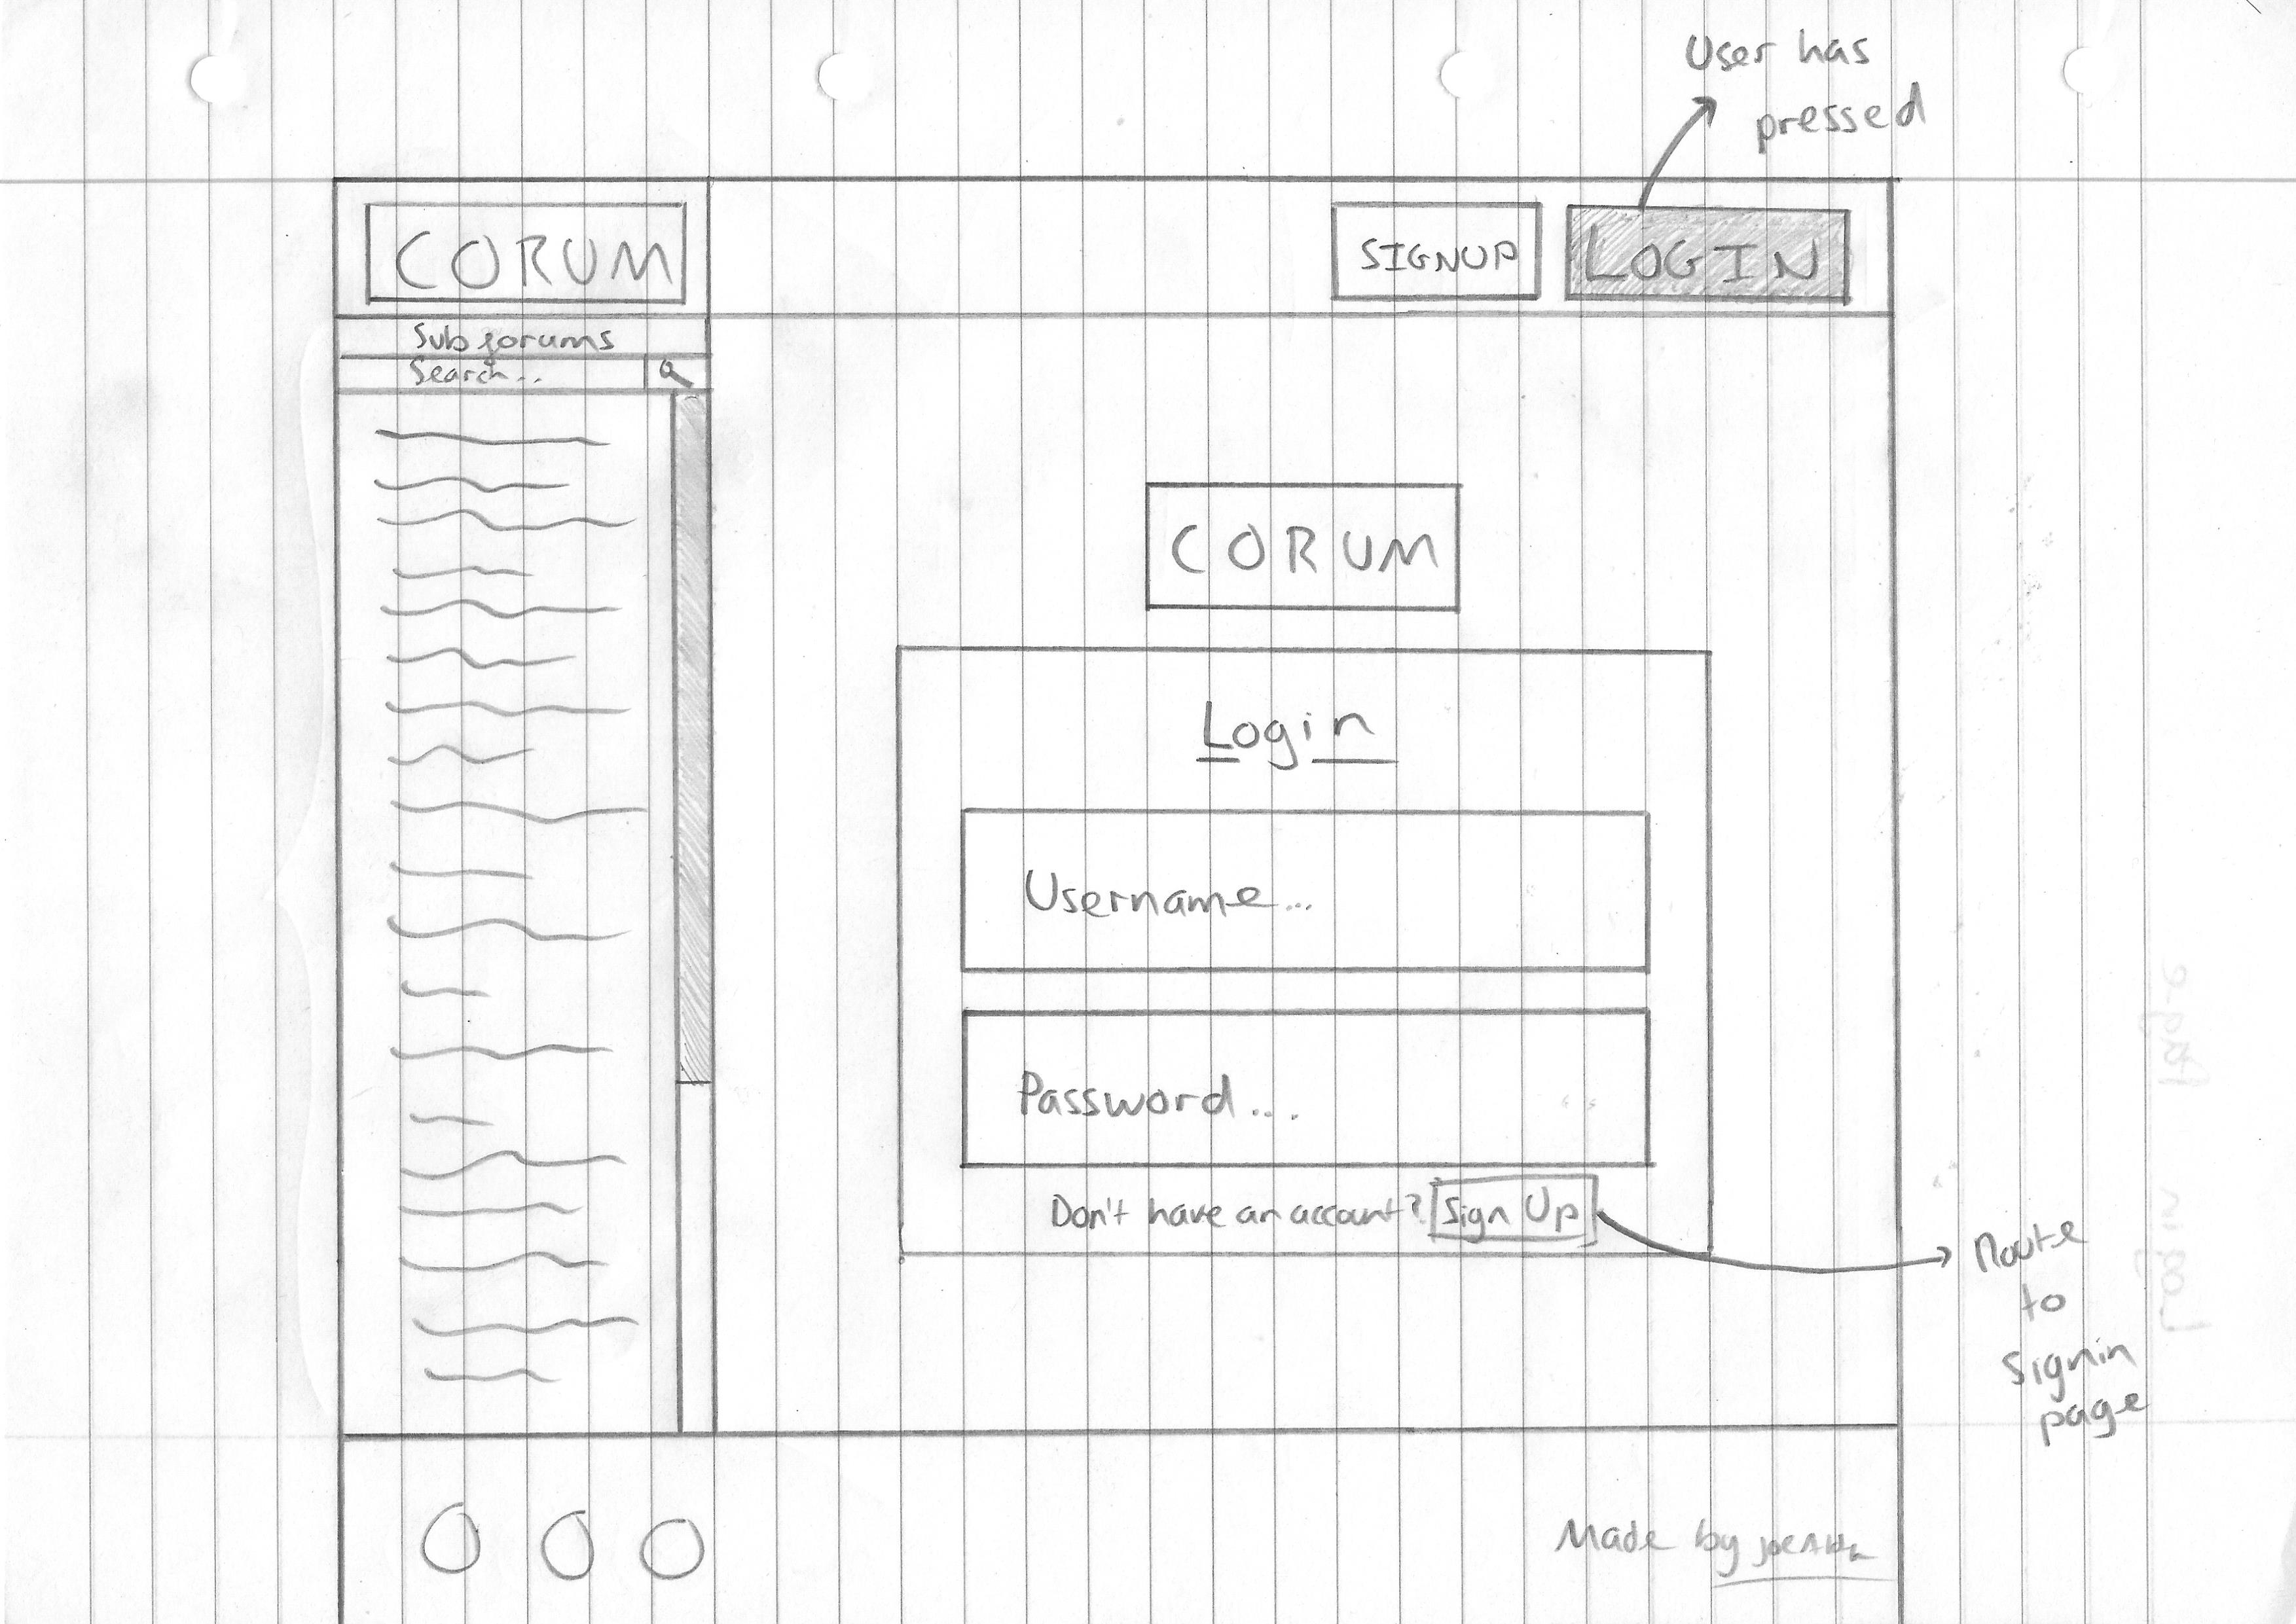 User has
pressed
CORUM
SIGNUP
LOGIN
Sub forums
Search...
CORUM
Login
Username...
Password....
Don't have an account? Sign Up
Route
to
Signin
page
Made by
Login Page